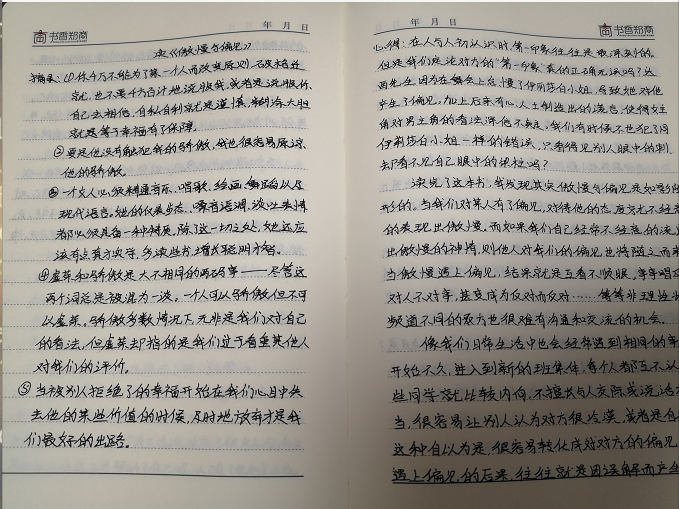 书香知商
年 月 日
读《傲慢与偏见》
摘录:(1)你千万不能为了某一个人而改变原则,破格迁
就,也不要千方百计地说服我,或者是说服你
自己去相信,自私自利就是谨慎,糊涂大胆
就是等于幸福有了保障。
②要是他没有触犯我的骄傲,我也很容易原谅
他的骄傲。
③一个女人必须精通音乐、唱歌、绘画、舞蹈以及
现代语言,她的仪表步态、嗓音语调、谈吐表情
都必须具备一种特质,除了这一切之外,她还应
该有点真才实学,多读些书,增长聪明才智。
④虚荣和骄傲是大不相同的两码事——尽管这
两个词总是被混为一谈。一个人可以骄傲但不可
以虚荣。骄傲多数情况下,无非是我们对自己
的看法,但虚荣却指的是我们过于看重其他人
对我们的评价。
⑤当被别人拒绝了的幸福开始在我们心目中失
去他的某些价值的时候,及时地放弃才是我
们最好的出路。
年 月 日
书香知商
心得:在人与人初认识时,第一印象往往是最深刻的。
但是我们应该对方的"第一印象"真的正确无误吗?达
西先生因为在舞会上怠慢了伊莉莎白小姐,导致她对他
产生了偏见,加上后来有心人士制造出的谎言,使得女主
角对男主角的看法深恶不疑。我们有时候不也犯了同
伊莉莎白小姐一样的错误,只看得见别人眼中的刺,
却看不见自己眼中的梁柱吗?
读完了这本书,我发现其实傲慢与偏见是如影随
形的。当我们对某人有了偏见,对待他的态度就不经意
的表现出傲慢。而如果我们自己经常不经意的流
出傲慢的神情,则他人对我们的偏见也将随之而来
当傲慢遇上偏见,结果就是互看不顺眼,事事唱反
对人不对事,甚至成为反对而反对……等等非理性
频道不同的双方也很难有沟通和交流的机会。
像我们日常生活中也会经常遇到相同的事
开始不久,进入到新的班集体,每个人都互不认
些同学就比较内向,不擅长与人交际或说话
当,很容易让别人认为对方很冷漠,或者是自
这种自以为是,很容易转化成对对方的偏见
遇上偏见,的后果,往往就是因误解而产生